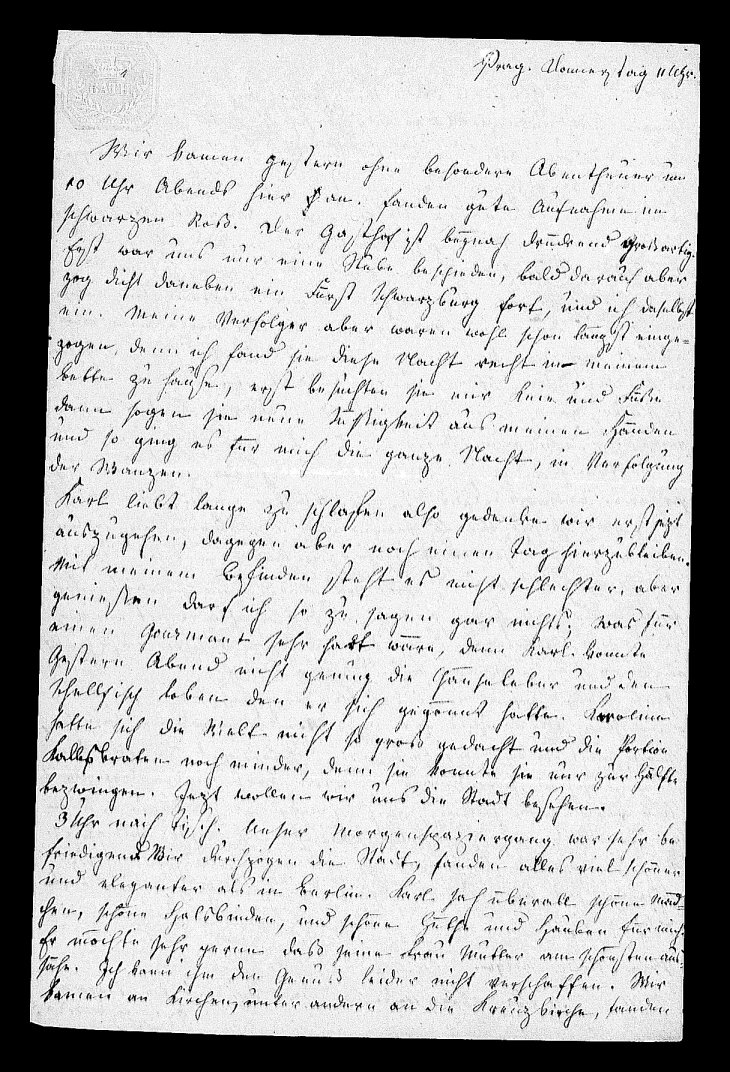 Prag. Donnerstag 11 Uhr.
Wir kamen gestern ohne besondere Abentheuer um
10 Uhr Abends hier an. fanden gute Aufnahme im
schwarzen Roß. Der Gasthof ist beynah drückend großartig.
Erst war uns nur eine Stube beschieden, bald darauf aber
zog dicht daneben ein Fürst Schwarzburg fort, und ich daselbst
ein. Meine Verfolger aber waren wohl schon längst einge-
zogen, denn ich fand sie diese Nacht recht in meinem
Bette zu Hause, erst besuchten sie mir Knie und Füße
dann sogen sie neue Süssigkeit aus meinen Händen
und so ging es für mich die ganze Nacht, in Verfolgung
der Wanzen.
Karl liebt lange zu schlafen also gedenken wir erst jezt
auszugehen, dagegen aber noch einen Tag hierzubleiben.
Mit meinem Befinden steht es nicht schlechter, aber
geniessen darf ich so zu sagen gar nichts; was für
einen Gourmant sehr hart wäre, denn Karl konnte
Gestern Abend nicht genug die Gänseleber und den
Schellfisch loben den er sich gegönnt hatte. Karoline
hatte sich die Welt nicht so groß gedacht und die Portion
Kalbsbraten noch minder, denn sie konnte sie nur zur Hälfte
bezwingen. Jezt wollen wir uns die Stadt besehen.
3 Uhr nach Tisch. Unser Morgenspaziergang war sehr be
friedigend. Wir durchzogen die Stadt, fanden alles viel schöner
und eleganter als in Berlin. Karl sah überall schöne Mäd-
chen, schöne Halsbinden, und schöne Hüthe und Hauben für mich.
Er möchte sehr gerne daß seine Frau Mutter am schönsten aus-
sähe. Ich kann ihm den Genuß leider nicht verschaffen. Wir
kamen an Kirchen, unter andern an die Kreuzkirche, fanden